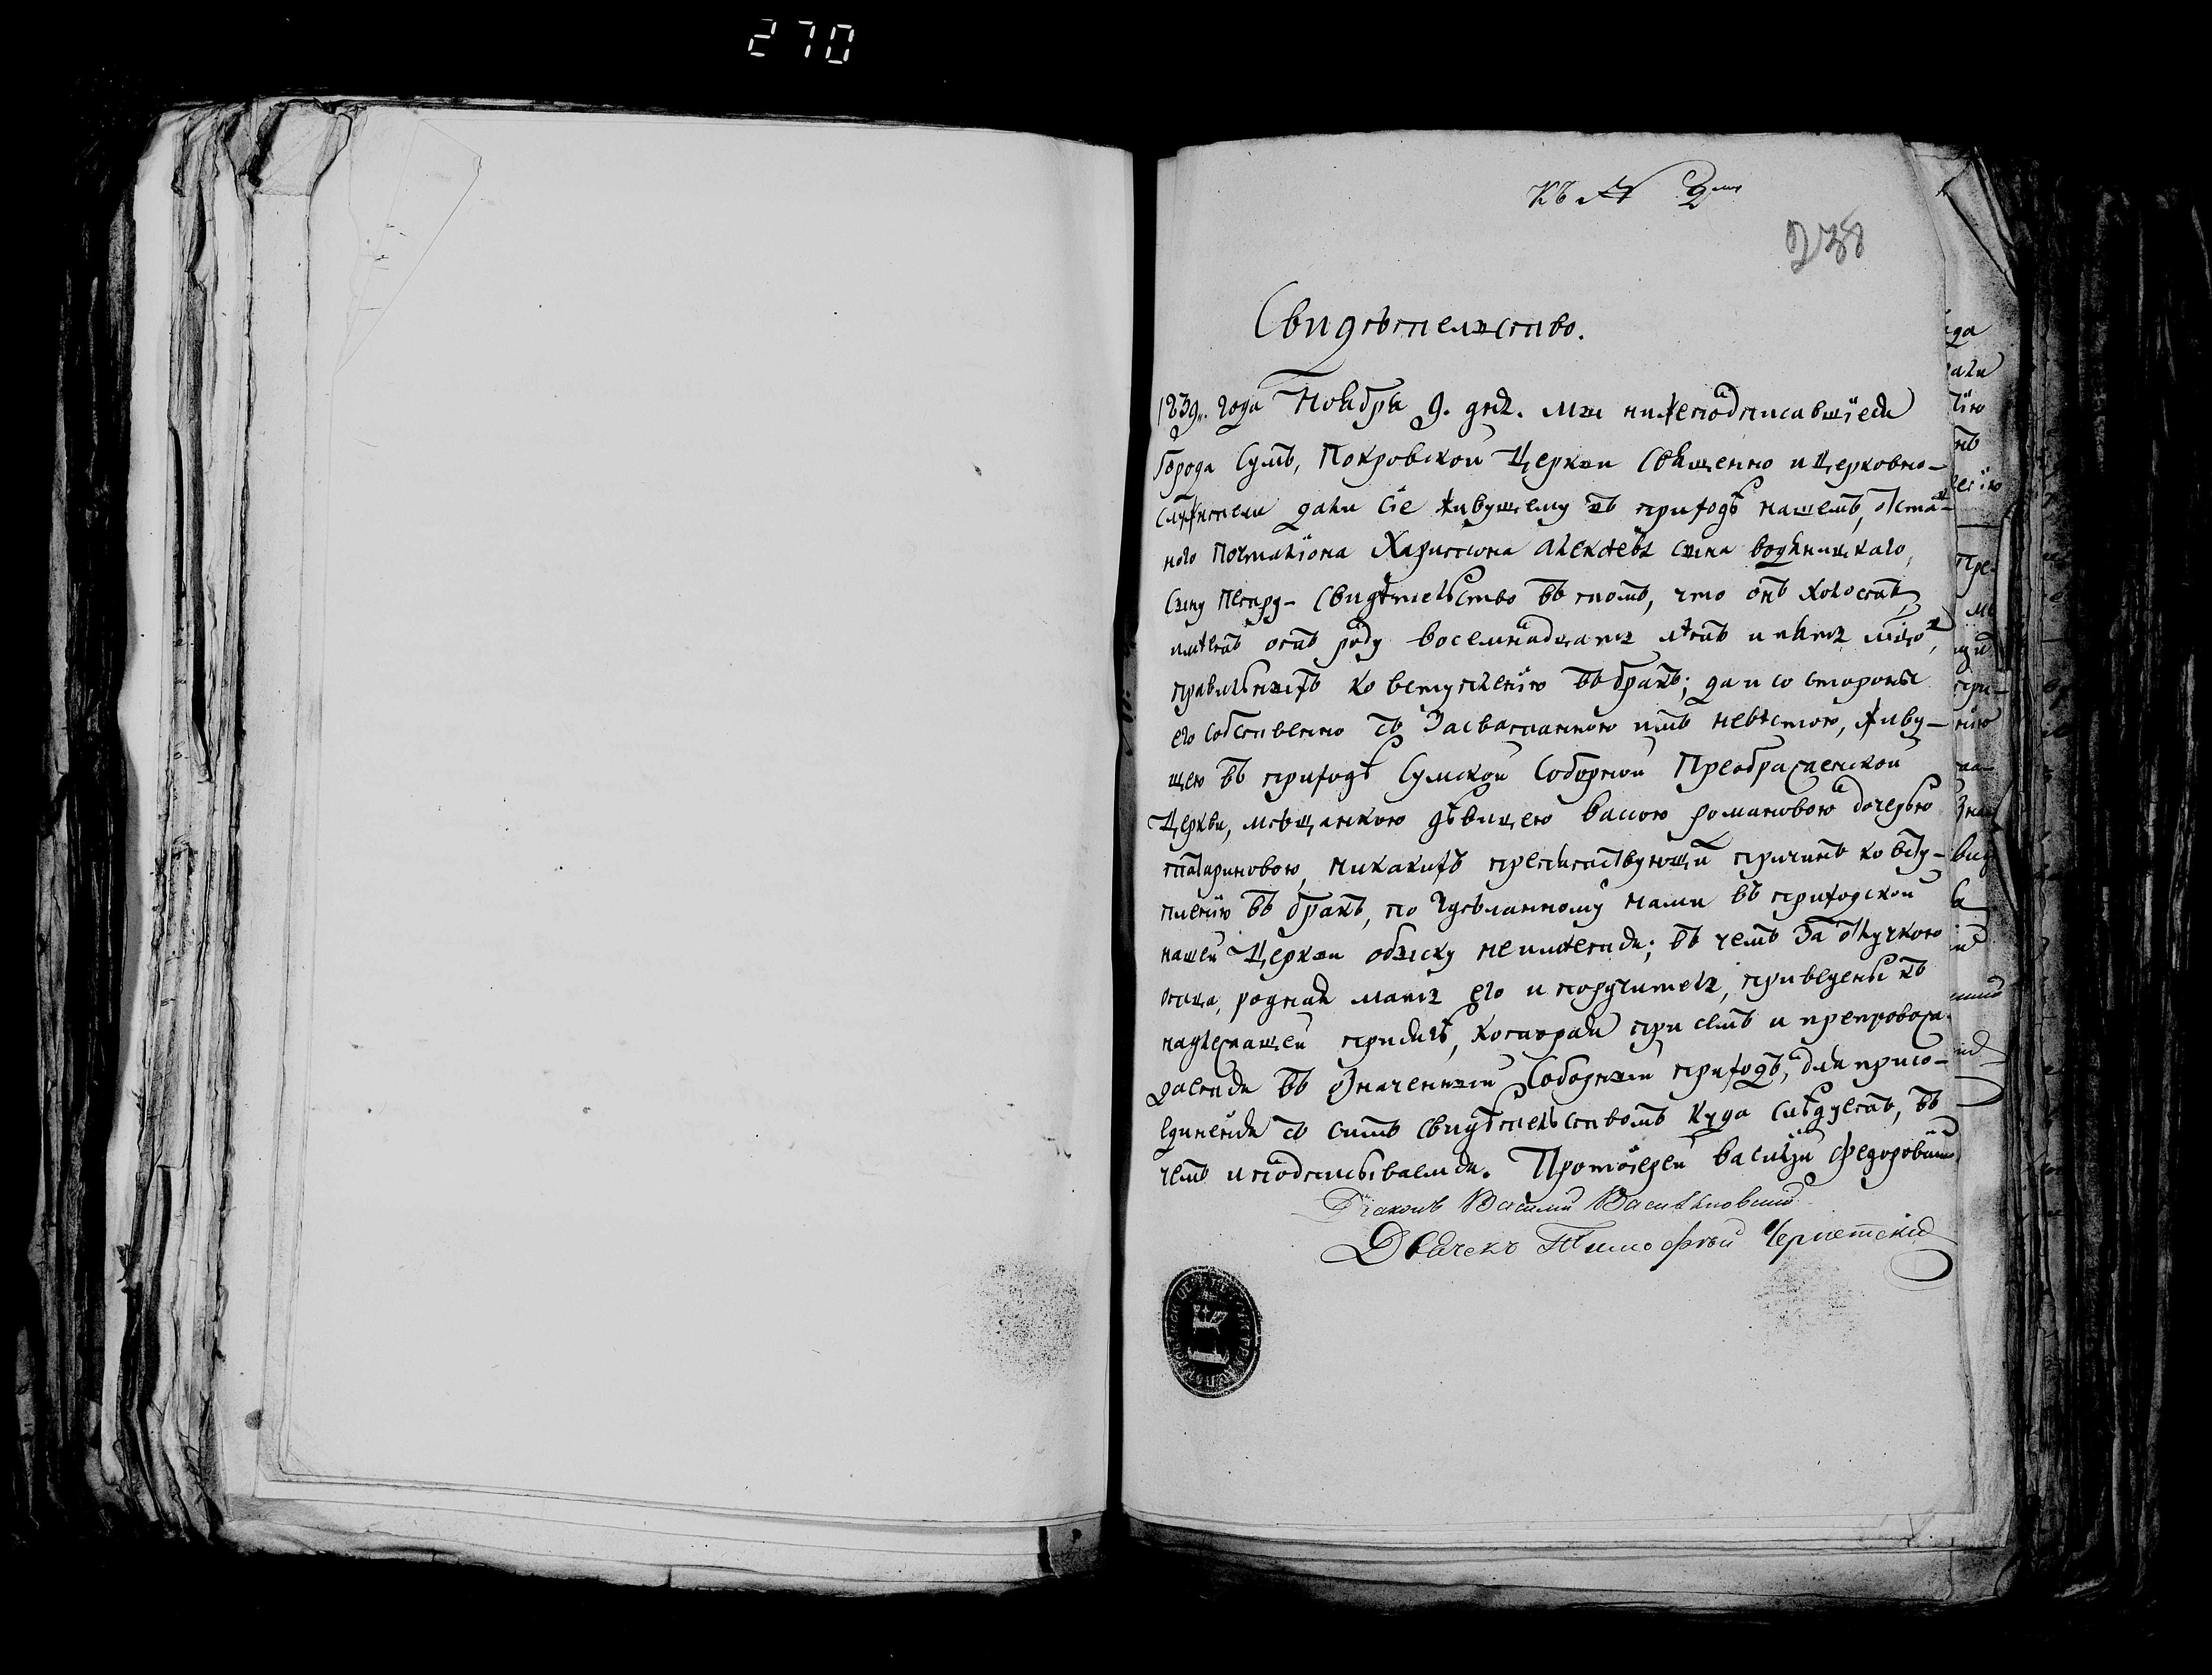 270
Къ № 2му
238
Свидѣтельство.
1839. года Ноября 9. дня. Мы нижеподписавшіеся
Города Сумъ, Покровской Церкви Священно и Церковно-
служители дали сіе живущему въ приходѣ нашемъ, отстав-
ного почталіона Харитона Алексѣева сына
сыну Петру - свидѣтельство въ томъ, что онъ холостъ,
имѣетъ отъ роду восемнадцать лѣтъ и пять мцовъ,
правильныхъ ко вступленію въ бракъ; да и со стороны
его собственно съ засватанною имъ невѣстою, живу-
щею въ приходѣ Сумской Соборной Преображенской
Церкви, мѣщанскою дѣвицею Вассою Романовою дочерью
Татариновою, никакихъ препятствующихъ причинъ ко всту-
пленію въ бракъ, по здѣланному нами въ приходской
нашей Церкви обыску неимѣется; въ чемъ за отлучкою
отца, родная мать его и поручители, приведены къ
надлежащей присягѣ, которая при семъ и препровож-
дается въ означенный Соборный приходъ, для присо-
единенія съ симъ свидѣтельствомъ куда слѣдуетъ, въ
чемъ и подписываемся. Протоіерей Василій Федоровскій
Діаконъ Василій Васильковскій
Дьячекъ Тимофѣй Чернетскій